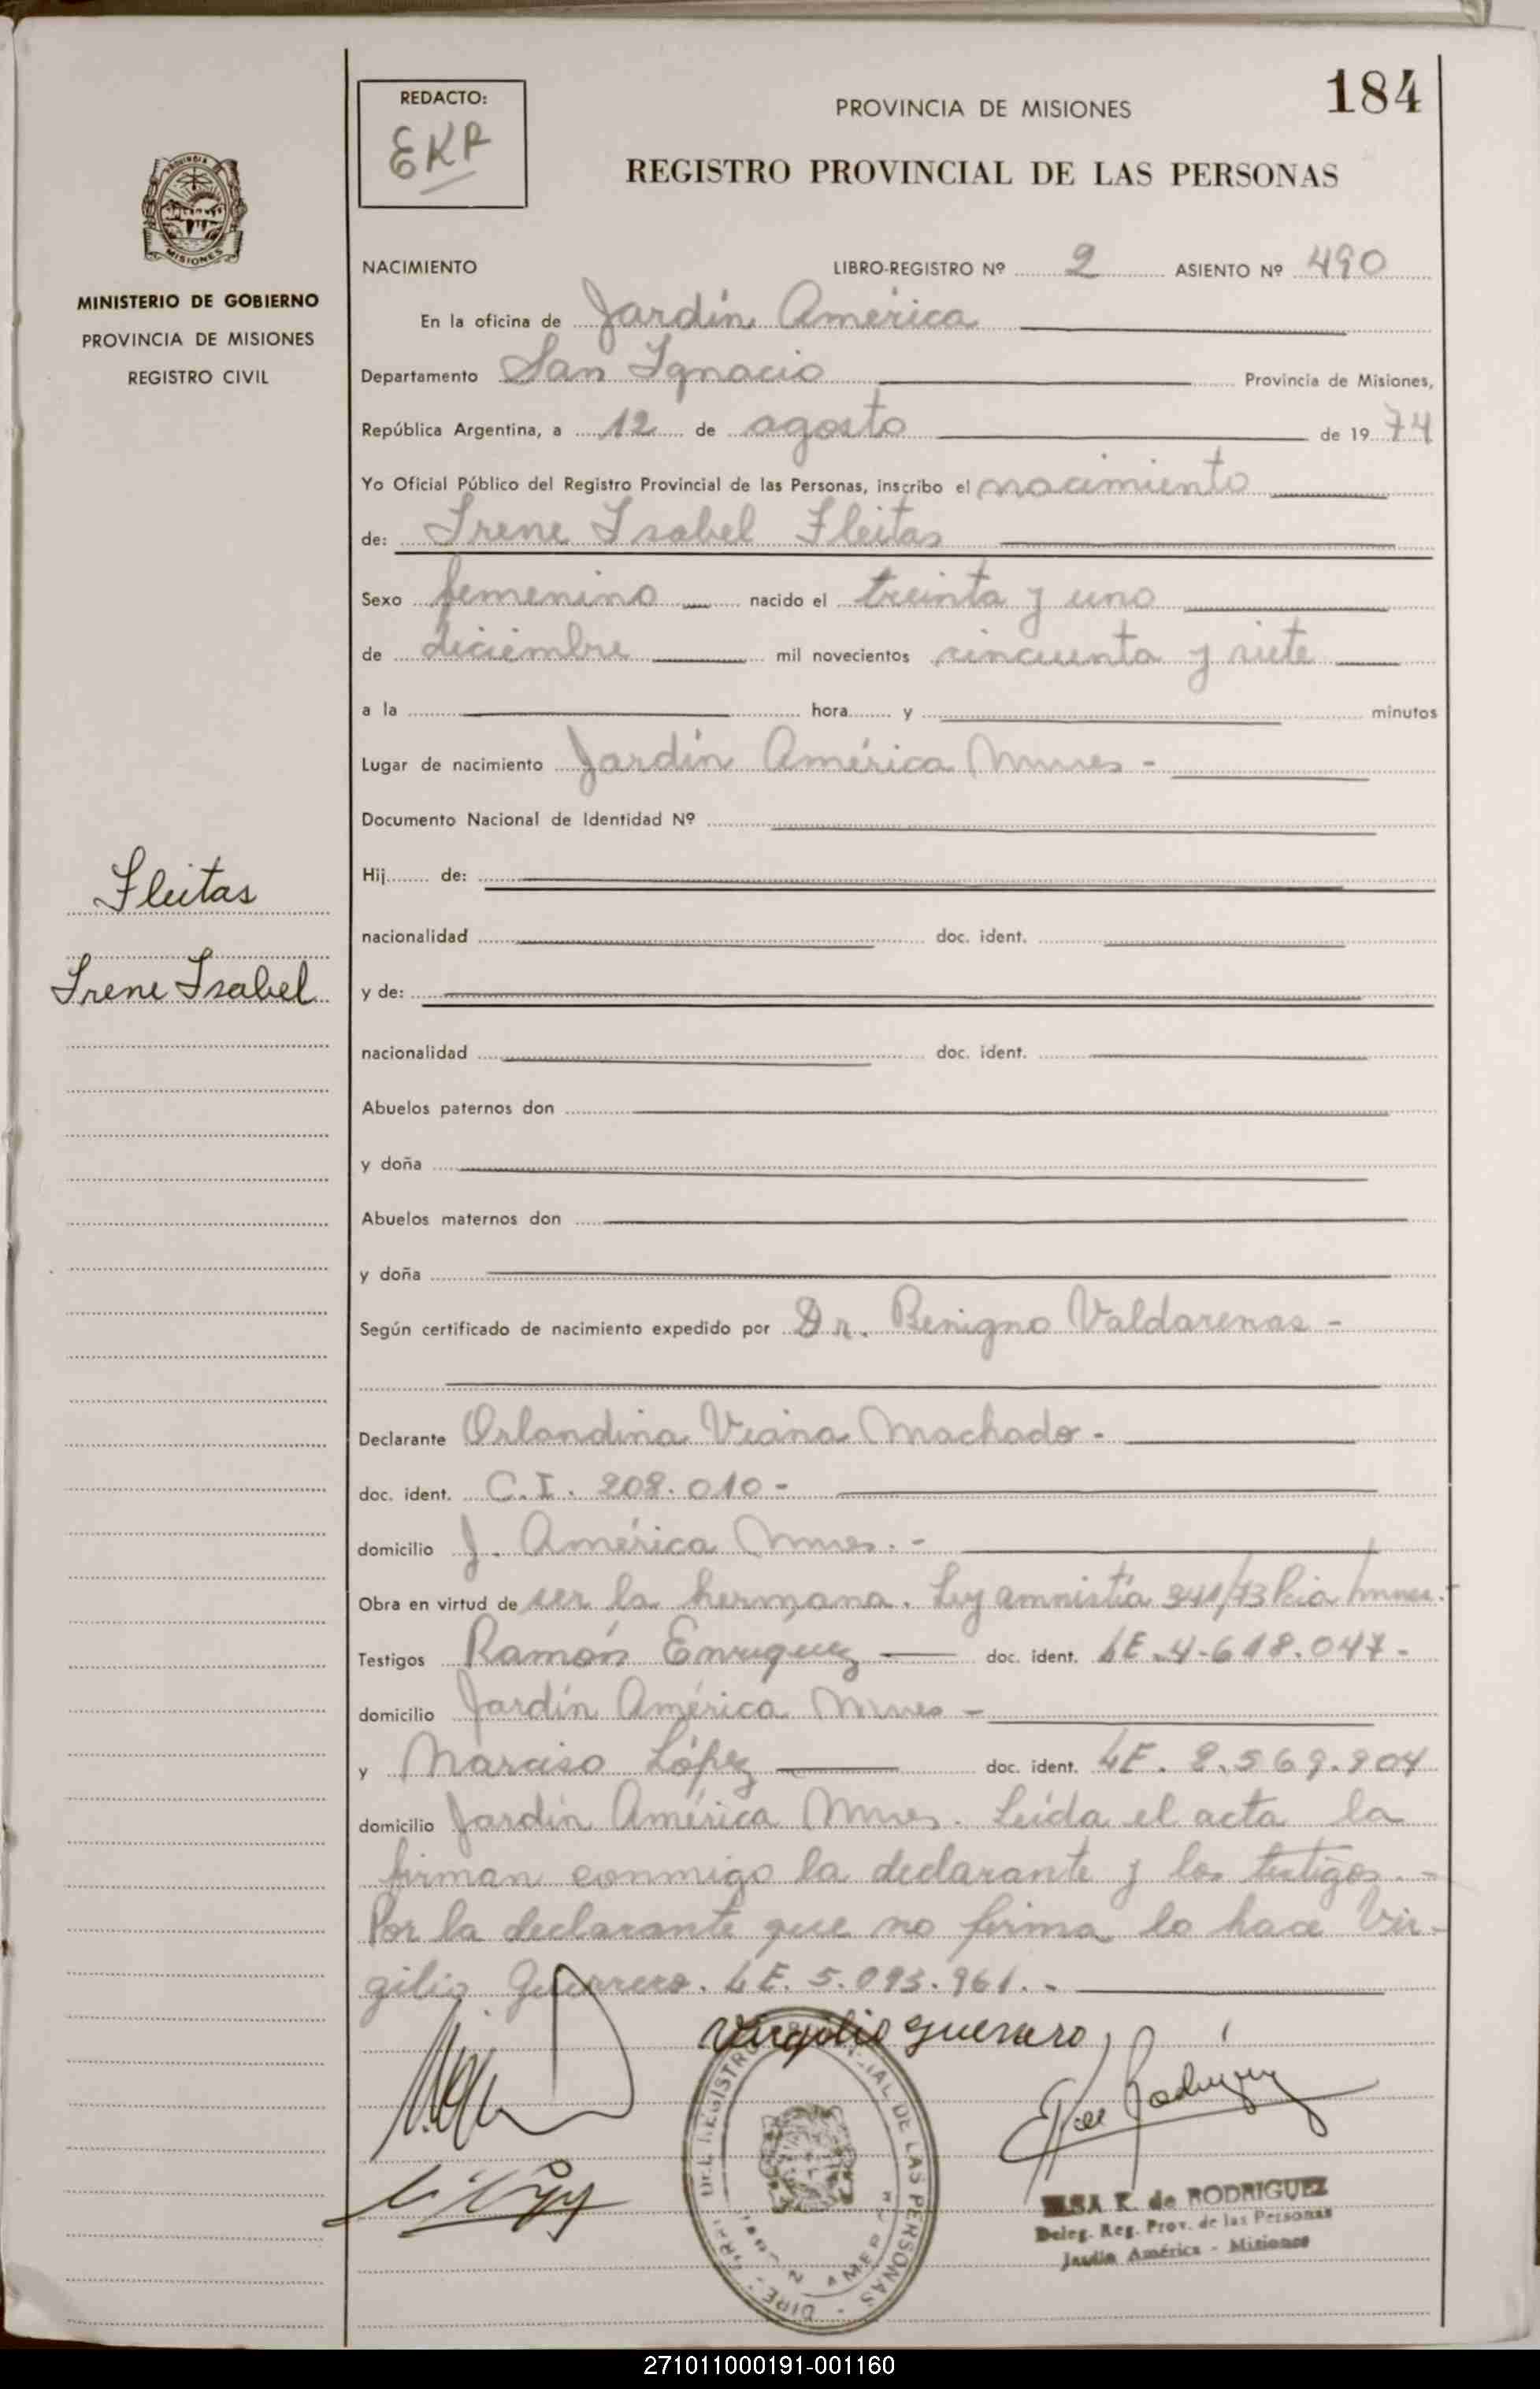 184
REDACTO:
EKR
PROVINCIA DE MISIONES
REGISTRO PROVINCIAL DE LAS PERSONAS
MISIONES
MINISTERIO DE GOBIERNO
PROVINCIA DE MISIONES
REGISTRO CIVIL
NACIMIENTO LIBRO-REGISTRO Nº 2 ASIENTO Nº 490
En la oficina de Jardín América
Departamento San Ignacio Provincia de Misiones,
República Argentina, a 12 de agosto de 1974
Yo Oficial Público del Registro Provincial de las Personas, inscribo el nacimiento
de: Irene Isabel Fleitas
Sexo femenino nacido el treinta y uno
de diciembre mil novecientos cincuenta y siete
a la hora y minutos
Lugar de nacimiento Jardín América Mnes -
Documento Nacional de Identidad Nº
Fleitas
Irene Isabel
Hij de:
nacionalidad doc. ident.
y de:
nacionalidad doc. ident.
Abuelos paternos don
y doña
Abuelos maternos don
y doña
Según certificado de nacimiento expedido por Dr. Benigno Valdarenas -
Declarante Orlandina Viana Machado -
doc. ident. C.I. 208.010 -
domicilio J. América Mnes. -
Obra en virtud de ser la hermana. Ley amnistía /73
Testigos Ramón Enriquez doc. ident. LE. 4.618.047 -
domicilio Jardín América Mnes -
y Narciso López doc. ident. LE. 8.569.904
domicilio Jardín América Mnes. Leída el acta la
firman conmigo la declarante y los testigos. -
Por la declarante que no firma lo hace Vir-
gilio Guerrero. LE. 5.093.961. -
Virgilio Guerrero
ELSA K. de RODRIGUEZ
Deleg. Reg. Prov. de las Personas
Jardín América - Misiones
271011000191-001160